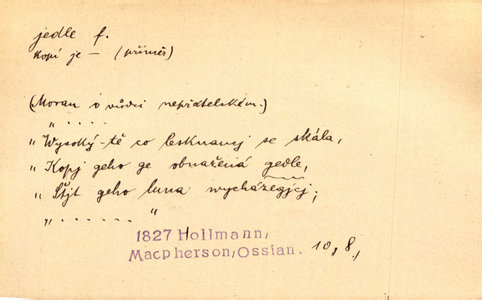 jedle f.
Kopí je — (příměr)
(Moran o vůdci nepřátelském.)
„ . . . .
„ Wysoký-tě co lesknaucj se skála,
„ Kopj geho ge obnažená gedle,
„ Štjt geho luna wycházegjcj;
„ . . . . . . "
1827 Hollmann,
Macpherson, Ossian. 10, 8.,